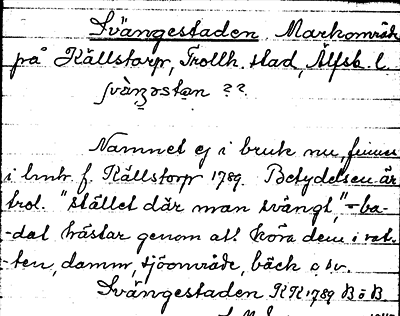 Svängestaden Markområde
på Källstorp, Trollh. stad, Älfsb. l.
ʃväŋʒəstan ??
Namnet ej i bruk nu, finnes
i lmtr. f. Källstorp 1789. Betydelsen är
trol. "stället där man svängt," = ba-
-dat hästar genom att köra dem i vat-
-ten, damm, sjöområde, bäck o. sv.
Svängestaden KK 1789 B ö B.